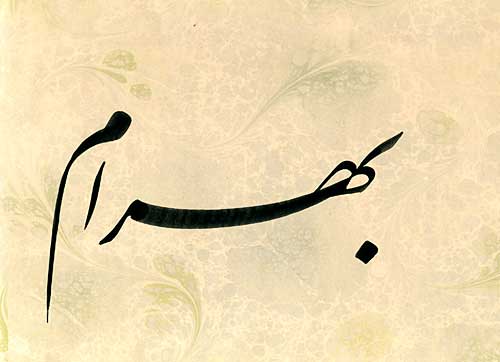 بهرام